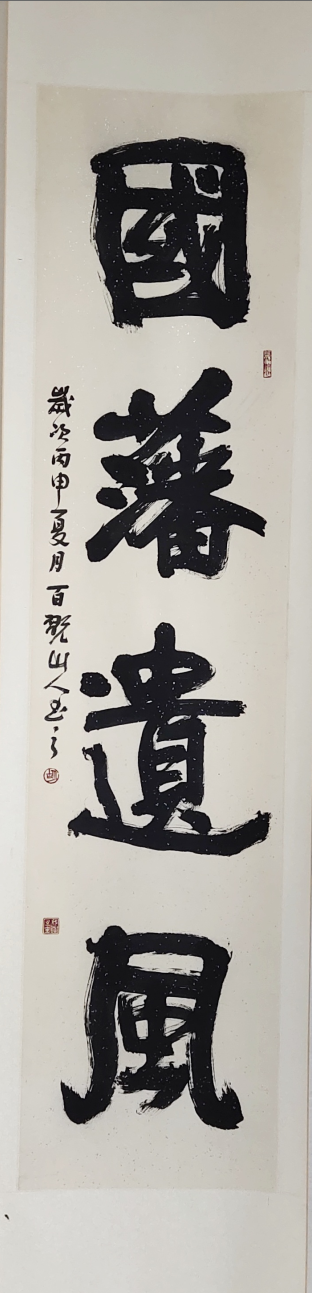 國藩遺風
歲次丙申夏月百 山人书之